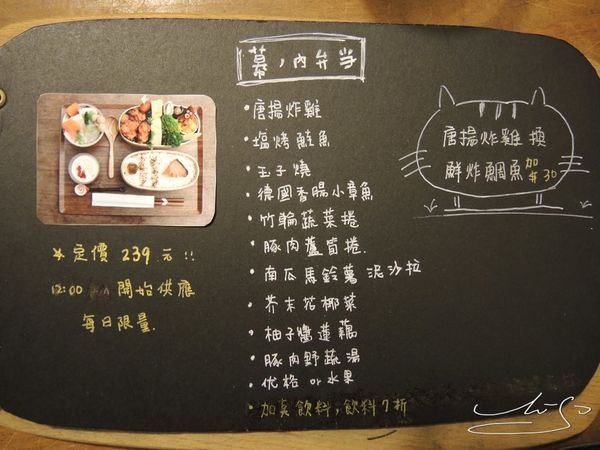 幕ノ內弁当
•唐揚炸雞
•塩烤鮭魚
•玉子燒
•德國香腸小章魚
•竹輪蔬菜捲
•豚肉蘆筍捲
•南瓜馬鈴薯泥沙拉
•芥末花椰菜
•柚子醬蓮藕
•豚肉野蔬湯
•优格 or 水果
•加点飲料,飲料7折
定價 239 元!!
12:00 開始供應
每日限量.
唐揚炸雞 換
鮮炸鯛魚 加$30